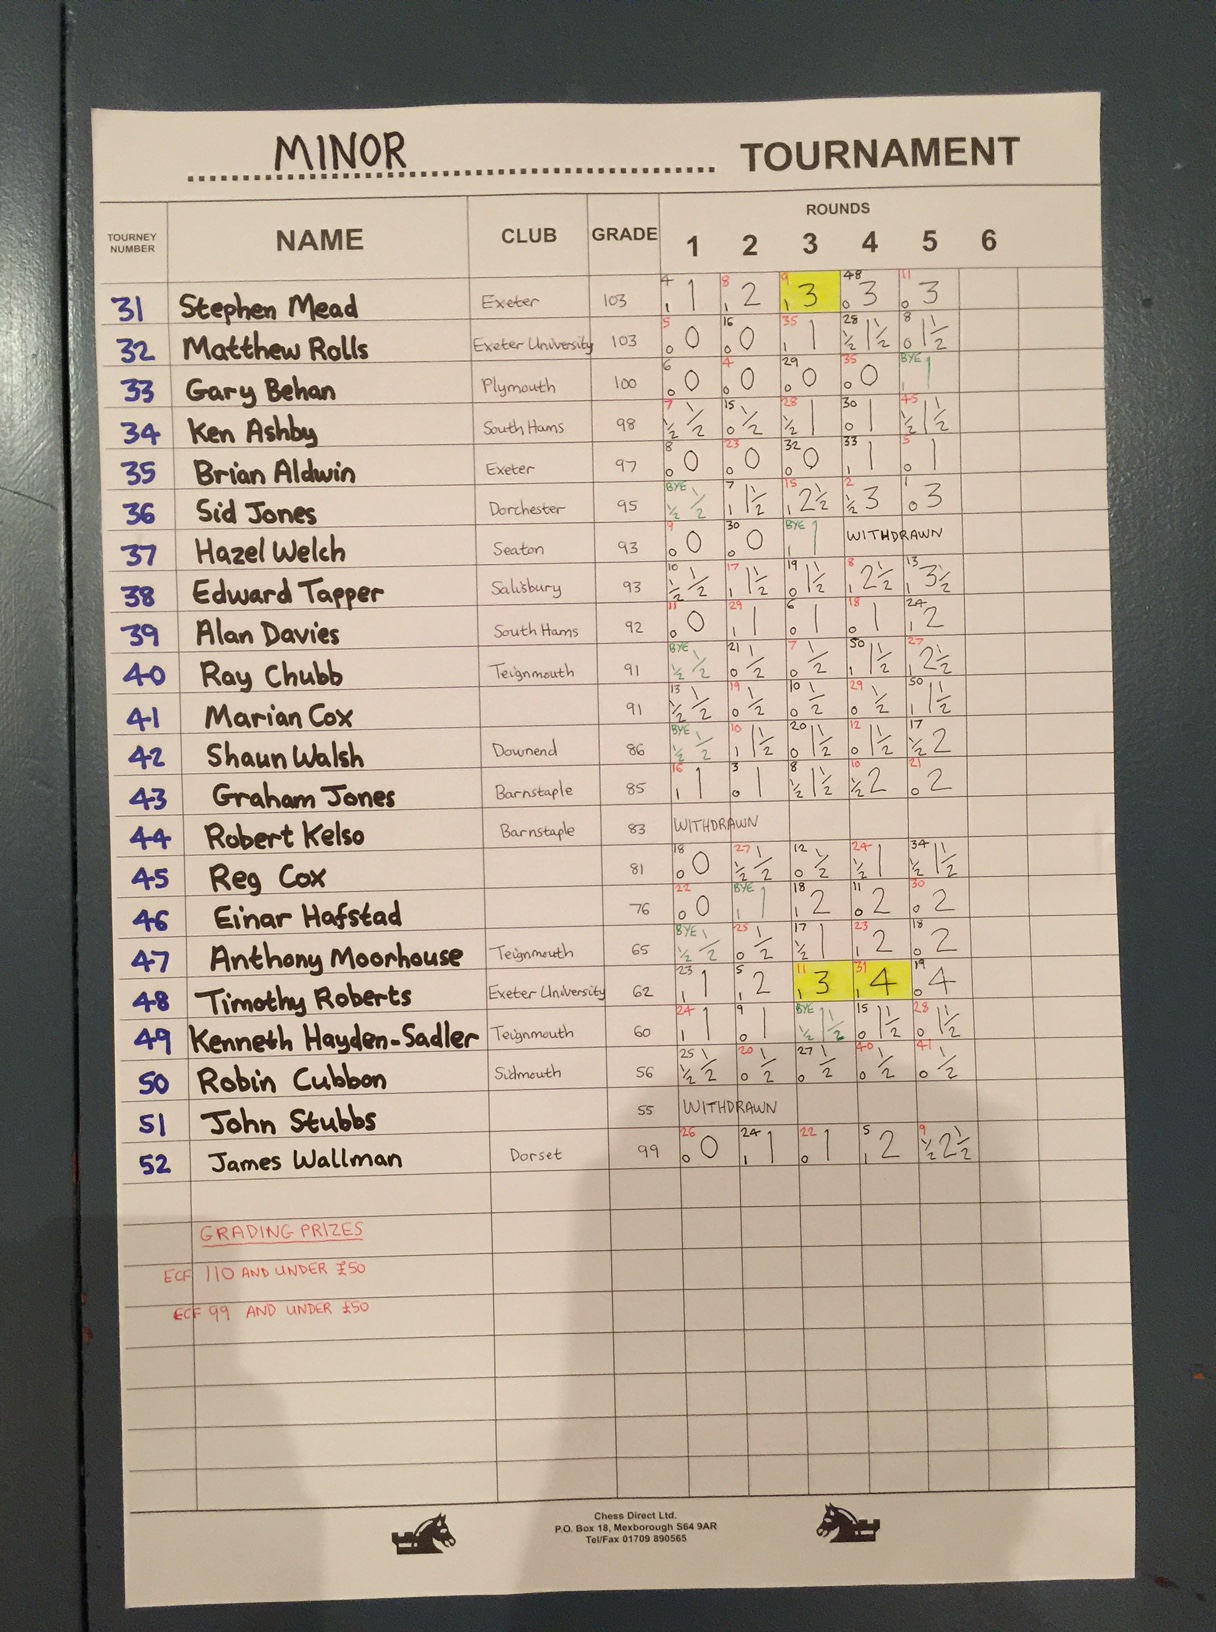 MINOR TOURNAMENT
TOURNEY NUMBER NAME CLUB GRADE ROUNDS 1 2 3 4 5 6
31 Stephen Mead Exeter 103 4 1 1 8 1 2 9 1 3 48 0 3 11 0 3
32 Matthew Rolls Exeter University 103 5 0 0 16 0 0 35 1 1 28 ½ 1½ 8 0 1½
33 Gary Behan Plymouth 100 6 0 0 4 0 0 29 0 0 35 0 0 BYE 1 1
34 Ken Ashby South Hams 98 7 ½ ½ 15 0 ½ 28 ½ 1 30 0 1 45 ½ 1½
35 Brian Aldwin Exeter 97 8 0 0 23 0 0 32 0 0 33 1 1 5 0 1
36 Sid Jones Dorchester 95 BYE ½ ½ 7 1 1½ 15 1 2½ 2 ½ 3 1 0 3
37 Hazel Welch Seaton 93 9 0 0 30 0 0 BYE 1 1 WITHDRAWN
38 Edward Tapper Salisbury 93 10 ½ ½ 17 1 1½ 19 0 1½ 8 1 2½ 13 1 3½
39 Alan Davies South Hams 92 11 0 0 29 1 1 6 0 1 18 0 1 24 1 2
40 Ray Chubb Teignmouth 91 BYE ½ ½ 21 0 ½ 7 0 ½ 50 1 1½ 27 1 2½
41 Marian Cox 91 13 ½ ½ 19 0 ½ 10 0 ½ 29 0 ½ 50 1 1½
42 Shaun Walsh Downend 86 BYE ½ ½ 10 1 1½ 20 0 1½ 12 0 1½ 17 ½ 2
43 Graham Jones Barnstaple 85 16 1 1 3 0 1 8 ½ 1½ 10 ½ 2 21 0 2
44 Robert Kelso Barnstaple 83 WITHDRAWN
45 Reg Cox 81 18 0 0 27 ½ ½ 12 0 ½ 24 ½ 1 34 ½ 1½
46 Einar Hafstad 76 22 0 0 BYE 1 1 18 1 2 11 0 2 30 0 2
47 Anthony Moorhouse Teignmouth 65 BYE ½ ½ 25 0 ½ 17 ½ 1 23 1 2 18 0 2
48 Timothy Roberts Exeter University 62 23 1 1 5 1 2 11 1 3 31 1 4 19 0 4
49 Kenneth Hayden-Sadler Teignmouth 60 24 1 1 9 0 1 BYE ½ 1½ 15 0 1½ 28 0 1½
50 Robin Cubbon Sidmouth 56 25 ½ ½ 20 0 ½ 27 0 ½ 40 0 ½ 41 0 ½
51 John Stubbs 55 WITHDRAWN
52 James Wallman Dorset 99 26 0 0 24 1 1 22 0 1 5 1 2 9 ½ 2½
GRADING PRIZES
ECF 110 AND UNDER £50
ECF 99 AND UNDER £50
Chess Direct Ltd.
P.O. Box 18, Mexborough S64 9AR
Tel/Fax 01709 890565